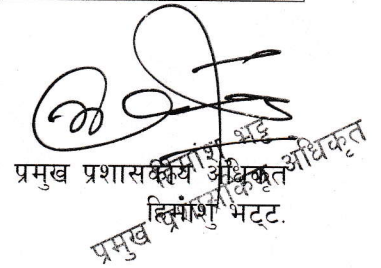 प्रमुख प्रशासकीय अधिकृत
हिमांशु भट्ट.
हिमांशु भट्ट
प्रमुख प्रशासकिय अधिकृत